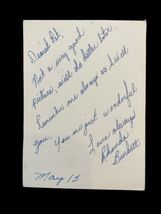 Dearest Pat,
Not a very good
picture, will do better later.
Remember me always as sweet
you. You are just wonderful
Love always
Rhonda
Burkett
May 15